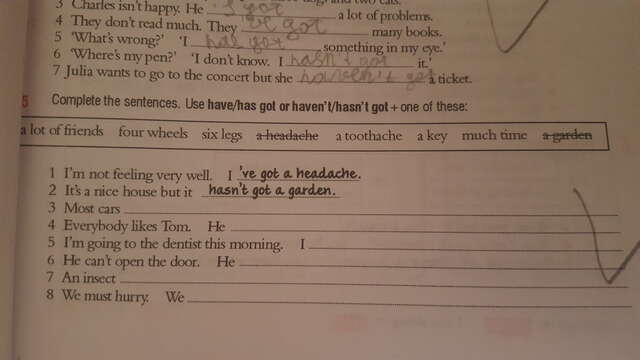 3 Charles isn't happy. He 's got a lot of problems.
4 They don't read much. They got many books.
5 'What's wrong?' 'I has got something in my eye.'
6 'Where's my pen?' 'I don't know. I hasn't got it.'
7 Julia wants to go to the concert but she haven't get a ticket.
5 Complete the sentences. Use have/has got or haven't/hasn't got + one of these:
a lot of friends four wheels six legs a headache a toothache a key much time a garden
1 I'm not feeling very well. I 've got a headache.
2 It's a nice house but it hasn't got a garden.
3 Most cars
4 Everybody likes Tom. He
5 I'm going to the dentist this morning. I
6 He can't open the door. He
7 An insect
8 We must hurry. We